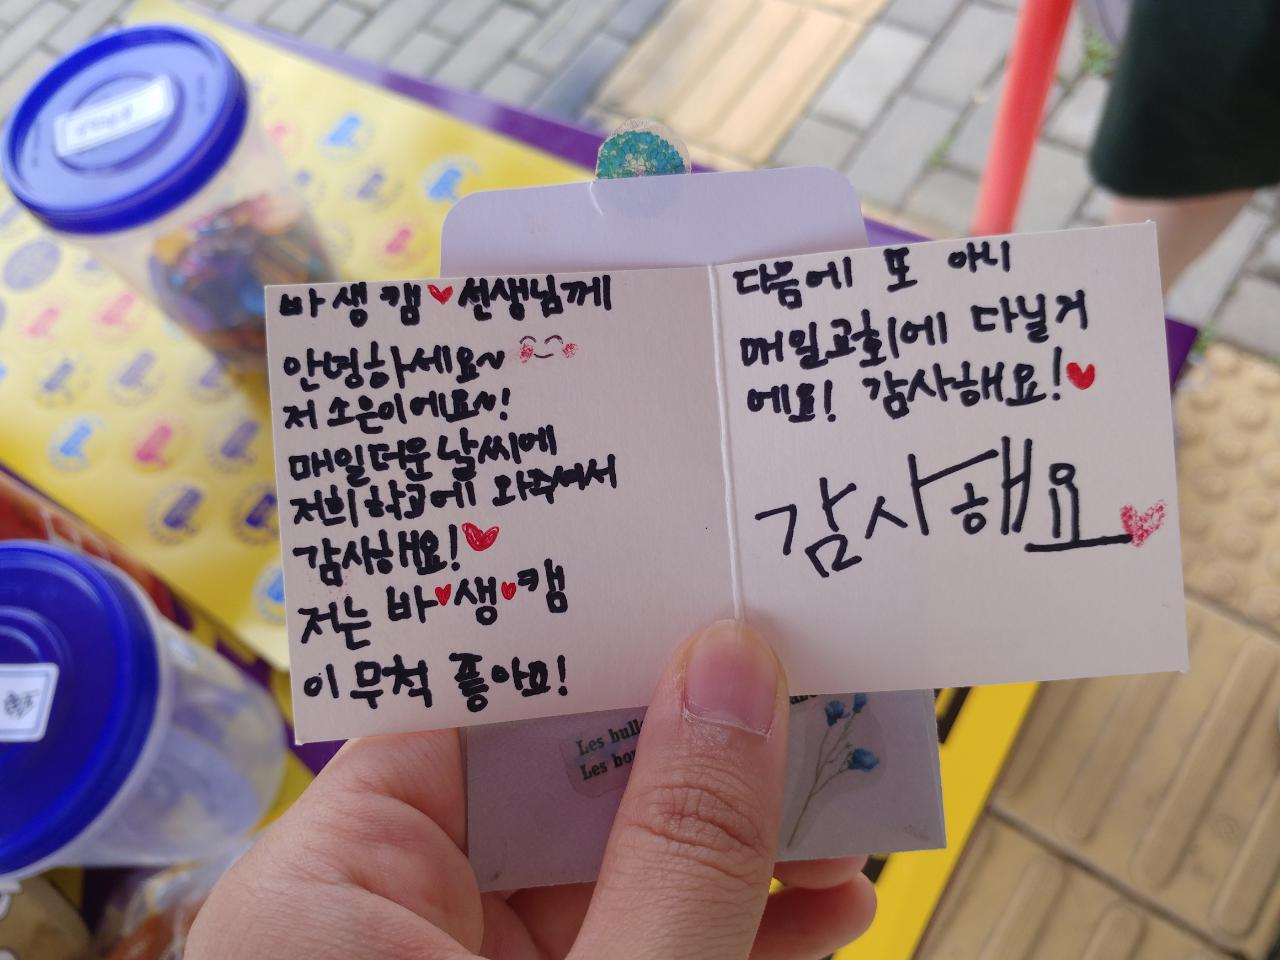 바생캠♥선생님께
안녕하세요~
저 소은이에요~!
매일 더운 날씨에
저희 학교에 와주셔서
감사해요!♥
저는 바♥생♥캠
이 무척 좋아요!
다음에 또 아니
매일 교회에 다닐거
에요! 감사해요!♥
감사해요♥
Les bull
Les bo